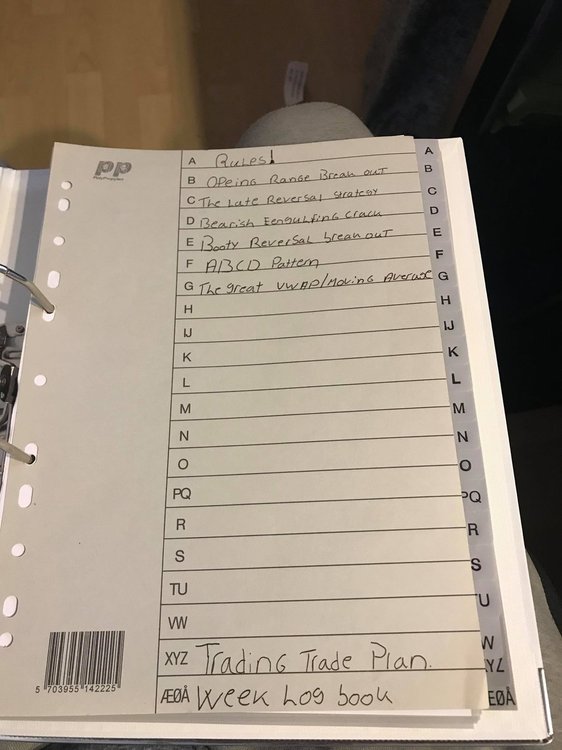 pp
A Rules!
B OPeing Range Break out
C The Late Reversal Strategy
D Bearish Eengulfing Crack
E Booty Reversal break out
F ABCD Pattern
G The great VWAP/Moving Average
H
IJ
K
L
M
N
O
PQ
R
S
TU
VW
XYZ Trading Trade Plan.
ÆØÅ Week Log book
5 703955 142225
A
B
C
D
E
F
G
H
IJ
K
L
M
N
O
PQ
R
S
U
W
YZ
ÆØÅ